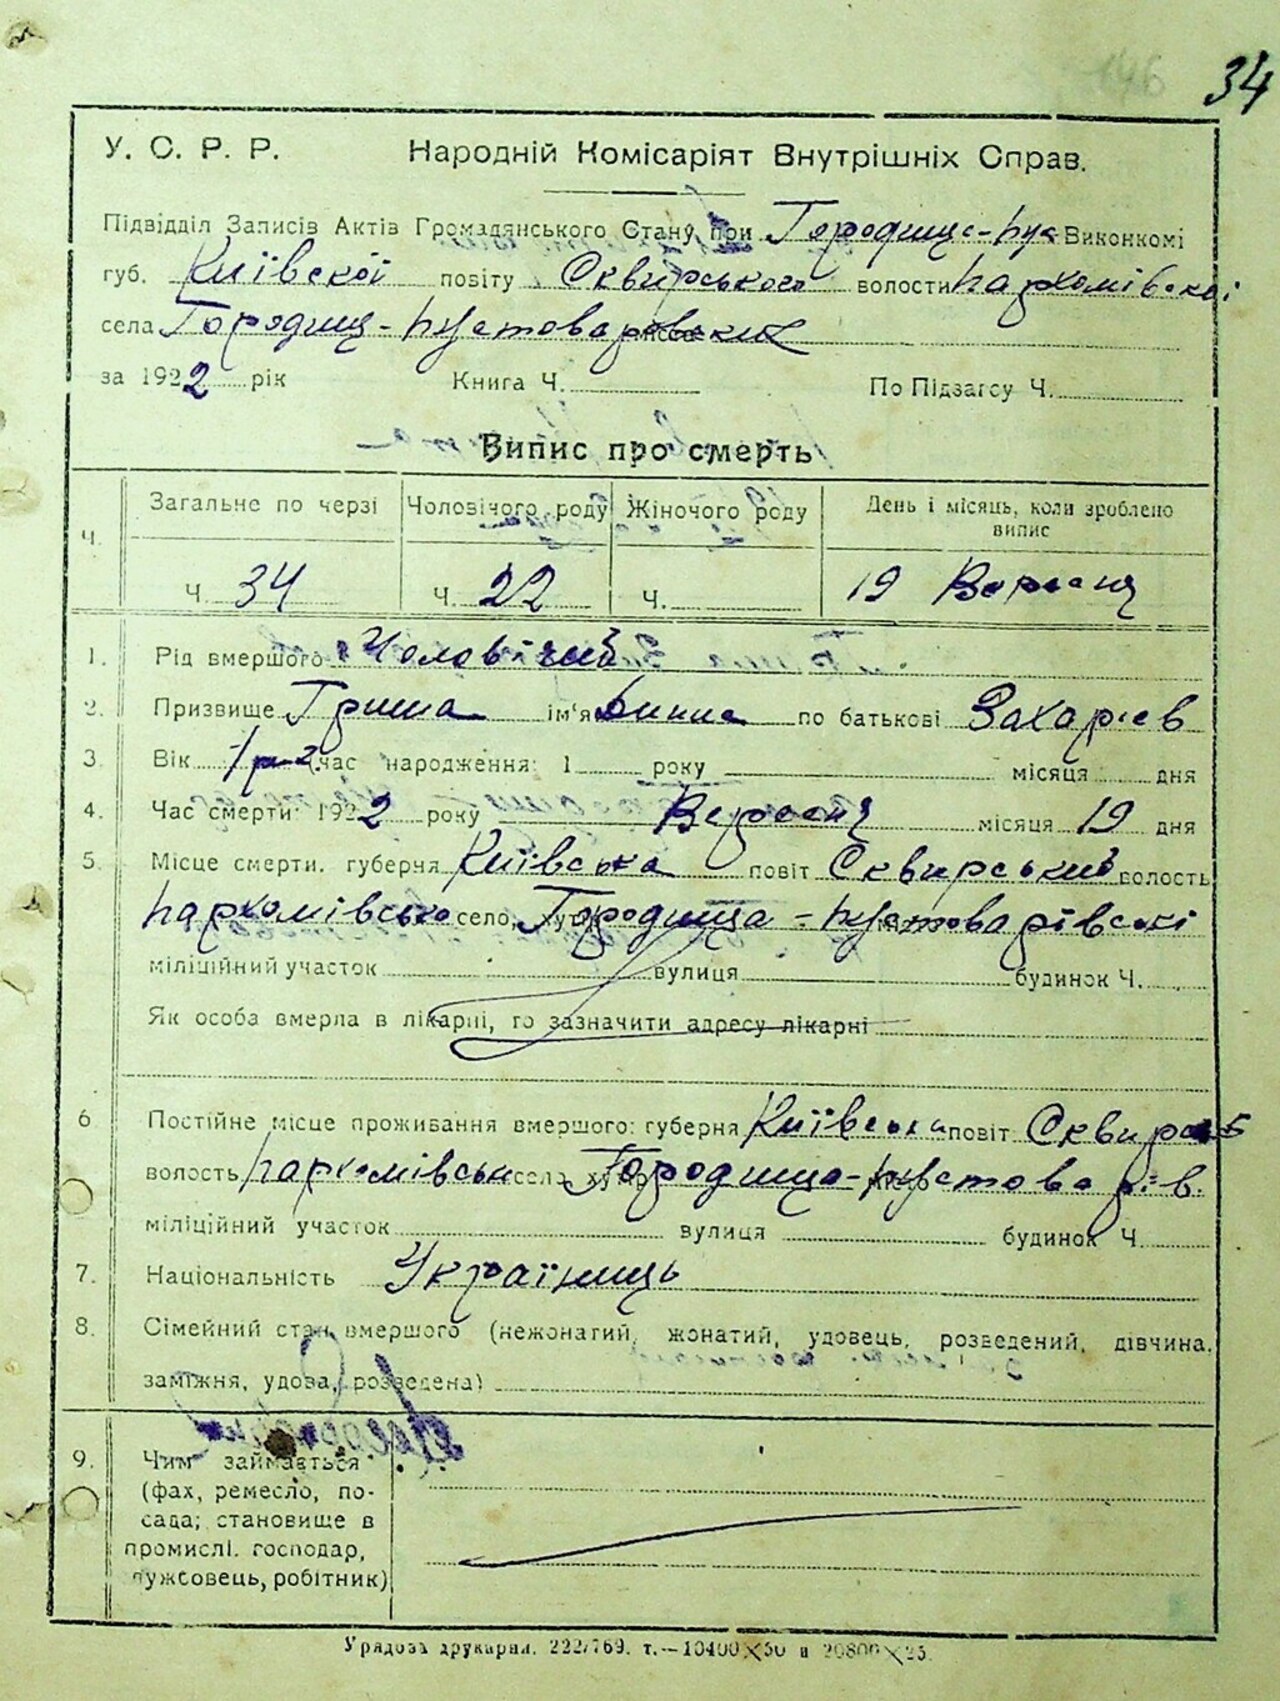 34
У. С. Р. Р. Народній Комісаріят Внутрішніх Справ.
Підвідділ Записів Актів Громадянського Стану при Городище-Пус Виконкомі
губ. Київскої повіту Сквирського волости Пархомівскої
села Городищ-Пустоваровских
за 1922 рік Книга Ч. По Підзагсу Ч.
Випис про смерть
Ч. Загальне по черзі Чоловічого роду Жіночого роду День і місяць, коли зроблено випис
Ч. 34 Ч. 22 Ч. 19 Вересня
1. Рід вмершого Чоловічий
2. Призвище Гриша ім'я по батькові Захарієв
3. Вік час народження: 1 року місяця дня
4. Час смерти: 1922 року Вересня місяця 19 дня
5. Місце смерти. губерня Київська повіт Сквирський волость
Пархомівсько село, хутір Городища-Пустоварівскі
міліційний участок вулиця будинок Ч.
Як особа вмерла в лікарні, то зазначити адресу лікарні
6 Постійне місце проживання вмершого: губерня Київська повіт Сквирськ
волость Пархомівськ село хутір Городища-Пустоварів.
міліційний участок вулиця будинок Ч.
7. Національність Україниць
8. Сімейний стан вмершого (нежонатий, жонатий, удовець, розведений, дівчина,
заміжня, удова, розведена)
9. Чим займається
(фах, ремесло, по-
сада; становище в
промислі. господар,
службовець, робітник)
Урядова друкарня. 222/769. т.—10400×50 и 20800×25.